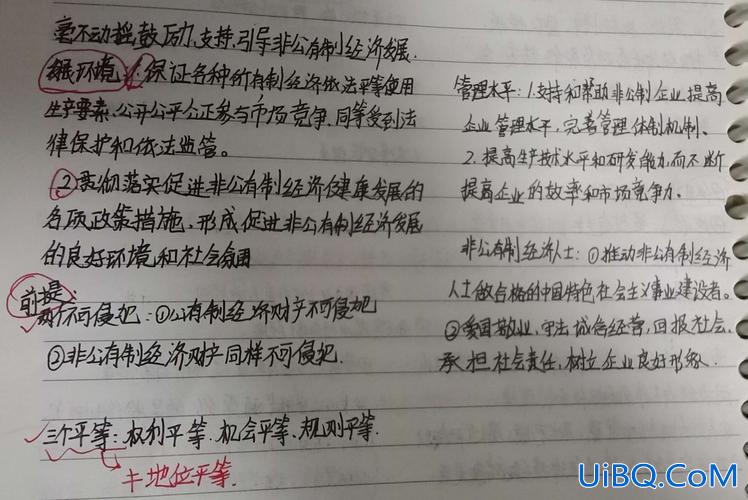 毫不动摇鼓励、支持、引导非公有制经济发展.
发展环境:①保证各种所有制经济依法平等使用
生产要素、公开公平公正参与市场竞争、同等受到法
律保护和依法监管。
②贯彻落实促进非公有制经济健康发展的
各项政策措施、形成促进非公有制经济发展
的良好环境和社会氛围
前提:
两个不可侵犯:①公有制经济财产不可侵犯
②非公有制经济财产同样不可侵犯.
三个平等:权利平等、机会平等、规则平等.
≠地位平等.
管理水平:1.支持和帮助非公制企业提高
企业管理水平,完善管理体制机制、
2.提高生产技术水平和研发能力,而不断
提高企业的效率和市场竞争力.
非公有制经济人士:①推动非公有制经济
人士做合格的中国特色社会主义事业建设者。
②爱国敬业、守法诚信经营、回报社会、
承担社会责任,树立企业良好形象.
UiBQ.CoM